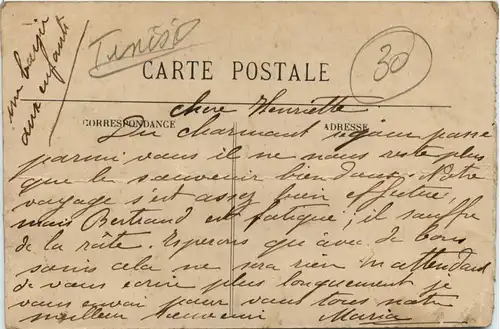 un baiser
aux enfants
Tunisie
30
CARTE POSTALE
chere Henriette
CORRESPONDANCE
ADRESSE
Du charmant sejour passé
parmi vous il ne nous reste plus
que le souvenir bien doux. Notre
voyage s'est assez bien effectué,
mais Bertrand est fatigué; il souffre
de la râte. Esperons que avec de bons
soins cela ne sera rien. En attendant
de vous ecrire plus longuement je
vous envoi pour vous tous notre
meilleur souvenir Maria